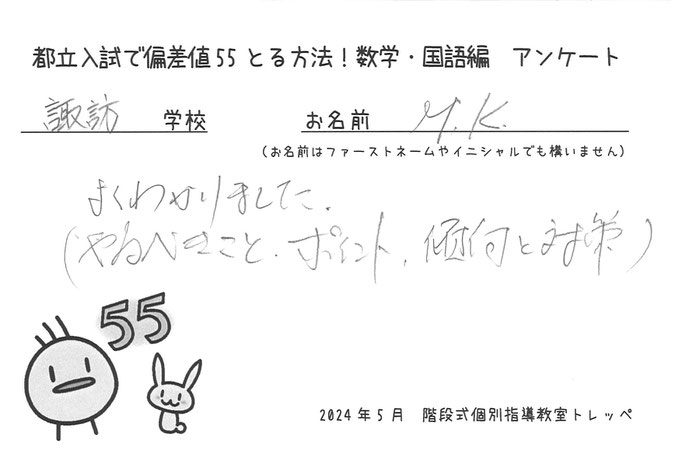 都立入試で偏差値55とる方法！数学・国語編　アンケート
諏訪　学校　お名前　M.K.
（お名前はファーストネームやイニシャルでも構いません）
よくわかりました.
(やるべきこと.ポイント,傾向と対策)
55
2024年5月　階段式個別指導教室トレッペ